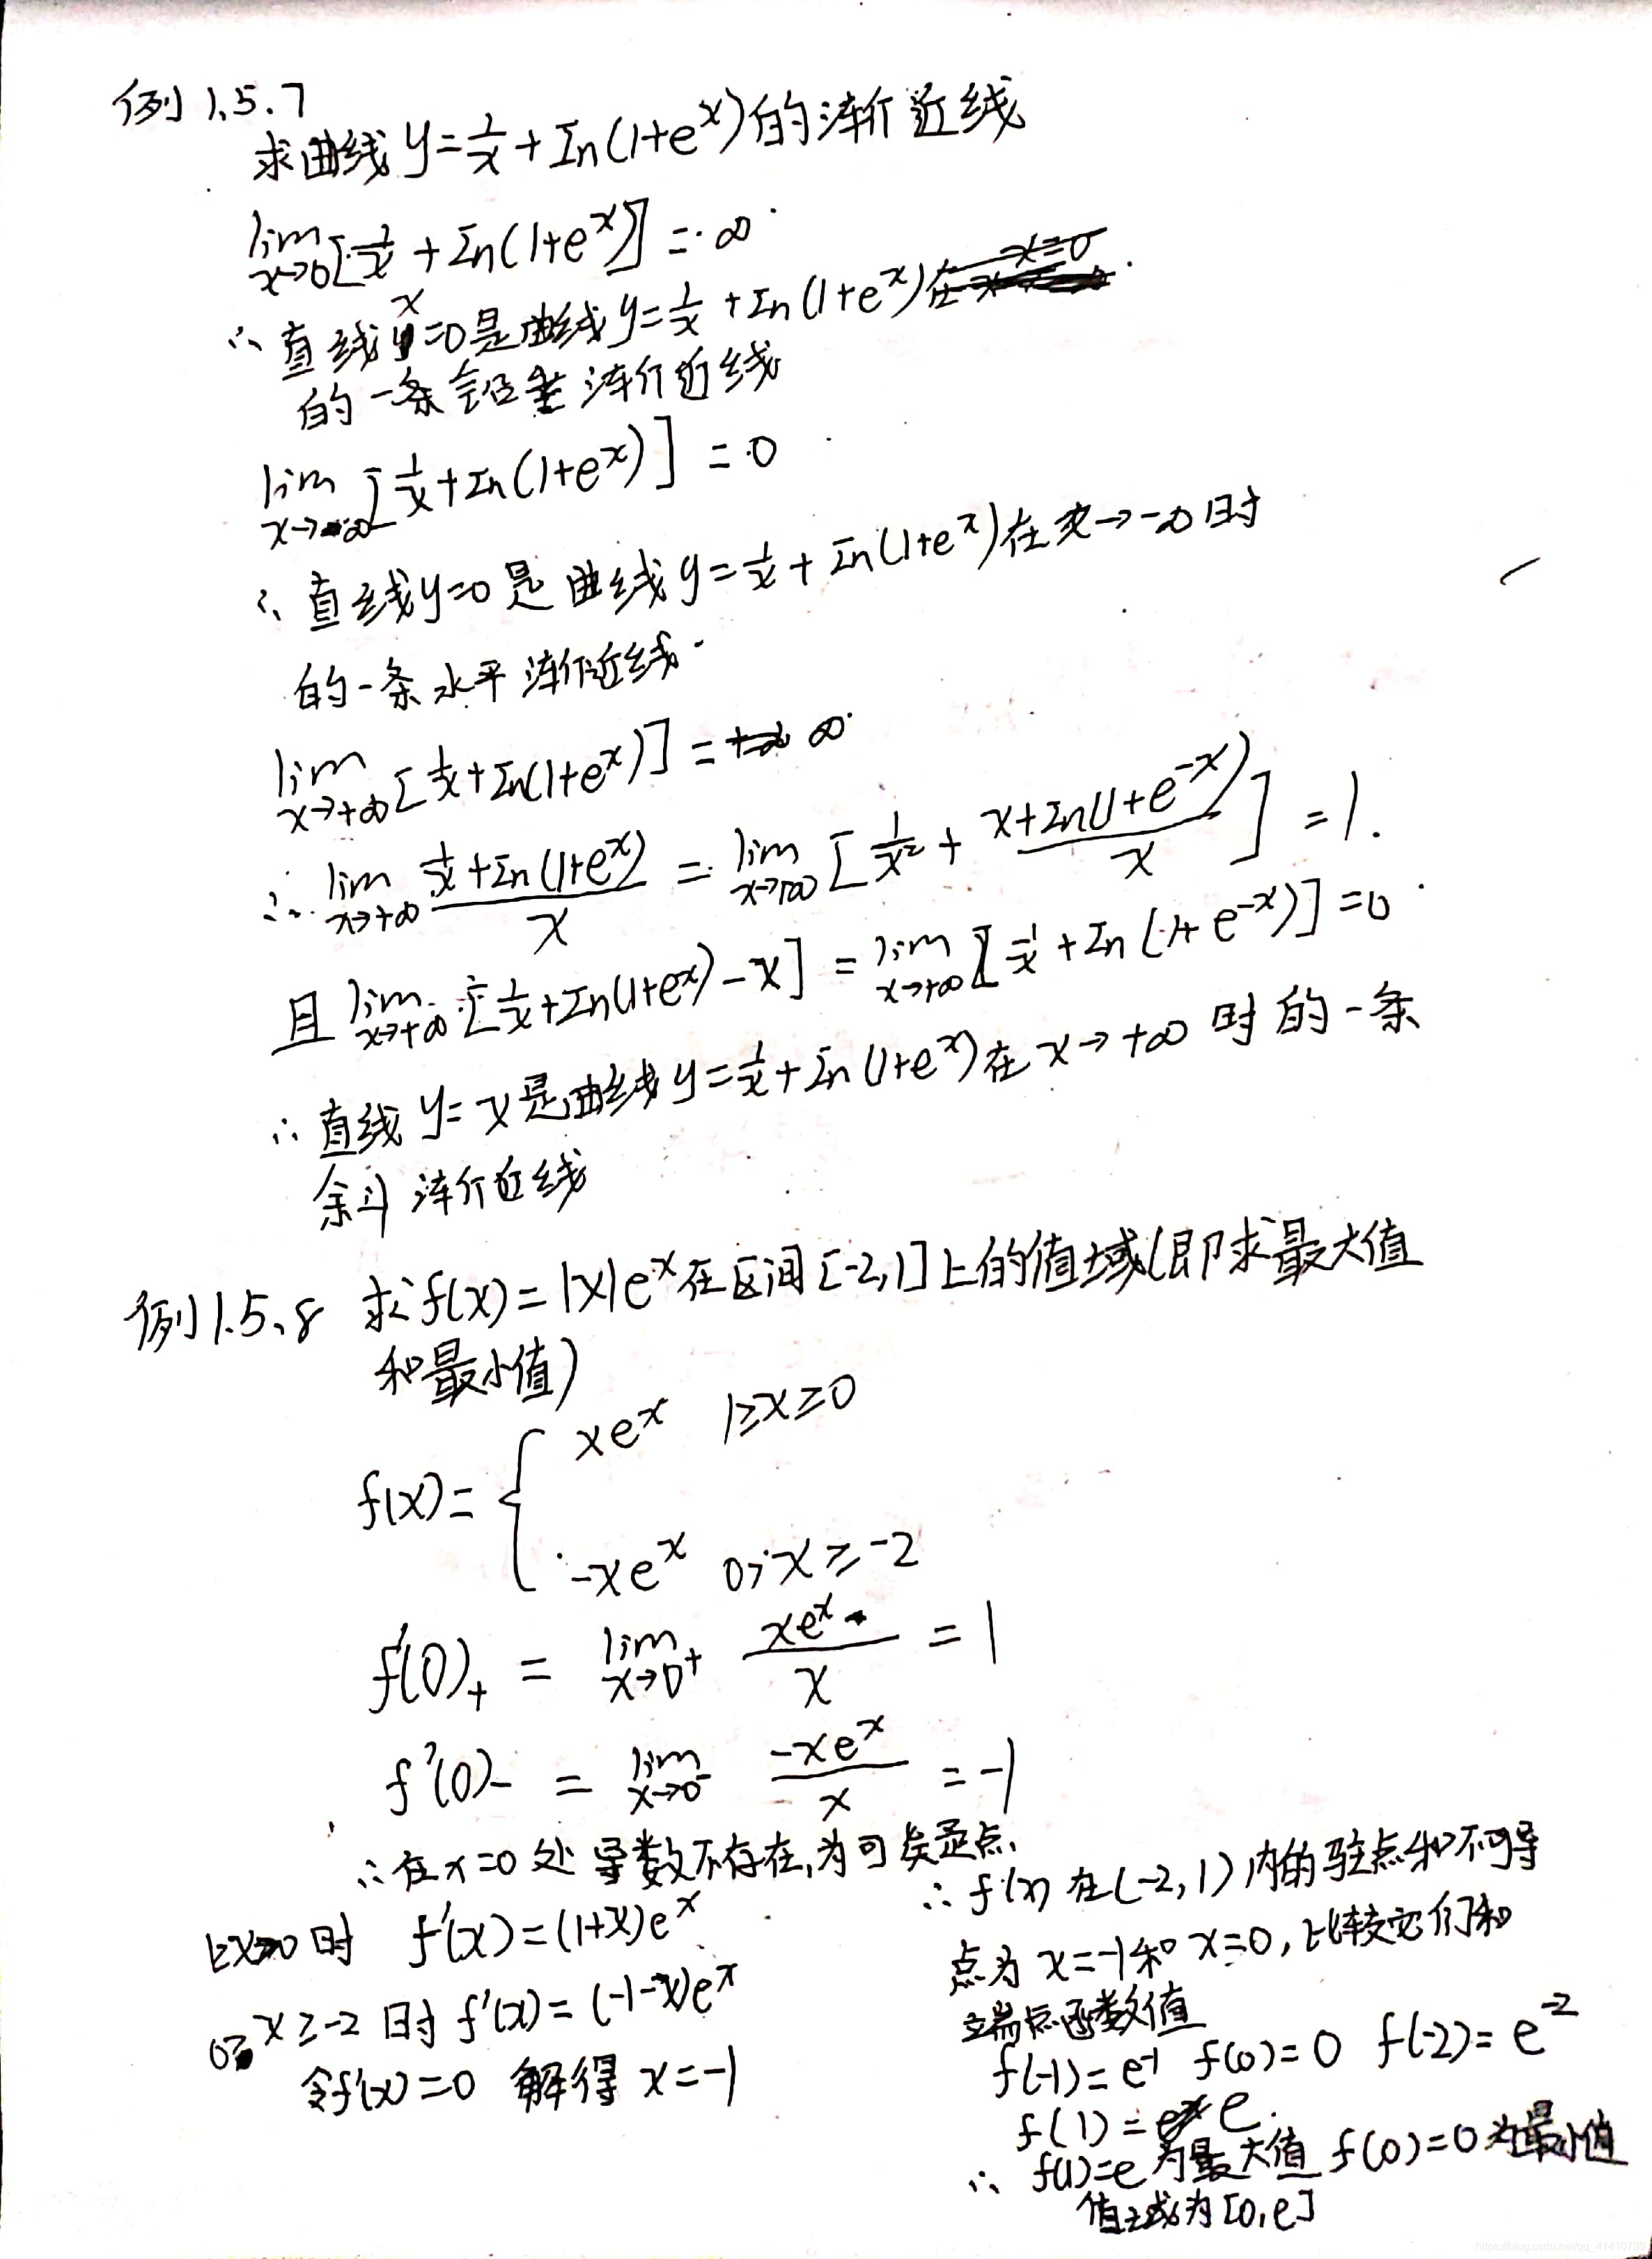 例1.5.7
求曲线 y=1/x+In(1+e^x)的渐近线
lim x→0 [1/x+In(1+e^x)]=∞
∴直线x=0是曲线y=1/x+In(1+e^x)在x=0
的一条铅垂渐近线
lim x→-∞ [1/x+In(1+e^x)]=0
∴直线y=0是曲线y=1/x+In(1+e^x)在x→-∞时
的一条水平渐近线
lim x→+∞ [1/x+In(1+e^x)]=∞
∴ lim x→+∞ (1/x+In(1+e^x))/x = lim x→+∞ [1/x²+(x+In(1+e^-x))/x]=1.
且 lim x→+∞ [1/x+In(1+e^x)-x] = lim x→+∞ [1/x+In(1+e^-x)]=0
∴直线y=x是曲线y=1/x+In(1+e^x)在x→+∞时的一条
斜渐近线
例1.5.8 求f(x)=|x|e^x在区间[-2,1]上的值域(即求最大值
和最小值)
f(x)={ xe^x 1≥x≥0
-xe^x 0>x≥-2
f'(0)+ = lim x→0+ xe^x/x = 1
f'(0)- = lim x→0- -xe^x/x = -1
∴在x=0处导数不存在,为可疑点.
1≥x>0时 f'(x)=(1+x)e^x
0>x≥-2时 f'(x)=(-1-x)e^x
令f'(x)=0 解得 x=-1
∴f(x)在(-2,1)内的驻点和不可导
点为x=-1和x=0,比较它们和
端点函数值
f(-1)=e^-1 f(0)=0 f(-2)=e^-2
f(1)=e.
∴ f(1)=e为最大值 f(0)=0为最小值
值域为[0,e]
https://blog.csdn.net/qq_41410799